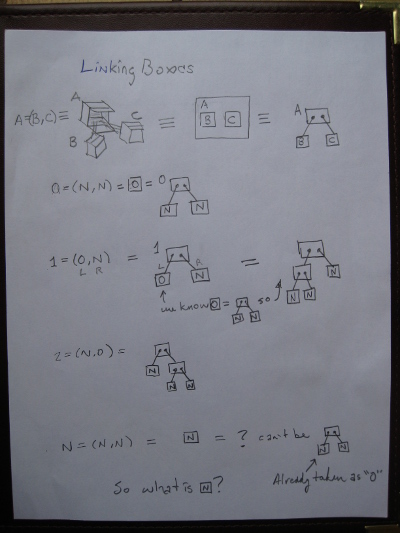 Linking Boxes
A=(B,C) ≡ A B C ≡ A B C ≡ A B C
0 = (N, N) = 0 = 0 N N
1 = (0,N) = 1 L R 0 N = N N N
L R
we know 0 = N N so
2 = (N,0) = N N N
N = (N,N) = N = ? can't be N N
So what is N? Already taken as "0"